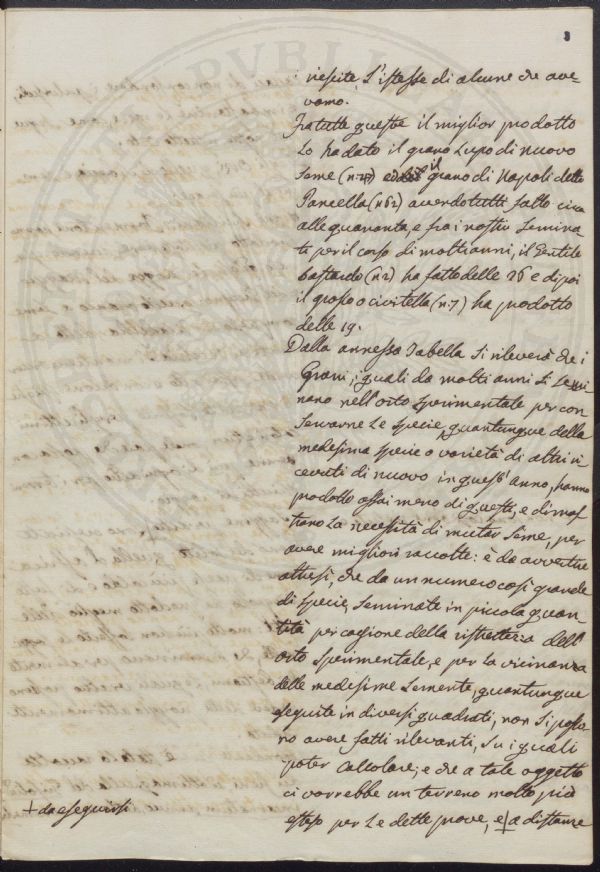 3
riescite l'istesse di alcune che ave-
vamo.
Fra tutte queste il miglior prodotto
Lo ha dato il grano Lupo di nuovo
seme (n: 27) ed il grano di Napoli detto
Parcella (n 62) avendo tutti fatto circa
alle quaranta, e fra i nostri Semina-
ti per il corso di molti anni, il Gentile
bastardo (n 2) ha fatto delle 26 e di poi
il grosso o civitella (n: 7) ha prodotto
delle 19.
Dalla annessa Tabella si rileverà che i
Grani, i quali da molti anni si semi
nano nell'orto sperimentale per con
servarne le specie, quantunque della
medesima specie o varietà di altri ri
cevuti di nuovo in quest'anno, hanno
prodotto assai meno di questi, e dimos
trano la necessità di mutar seme, per
avere migliori raccolte: è da avvertire
altresì, che da un numero così grande
di specie, seminate in piccola quan
tità per cagione della ristrettezza dell'
orto sperimentale, e per la vicinanza
delle medesime semente, quantunque
eseguite in diversi quadrati, non si posso
no avere fatti rilevanti, su i quali
poter calcolare; e che a tale oggetto
ci vorrebbe un terreno molto più
esteso per le dette prove, e + a distanze
+ da eseguirsi